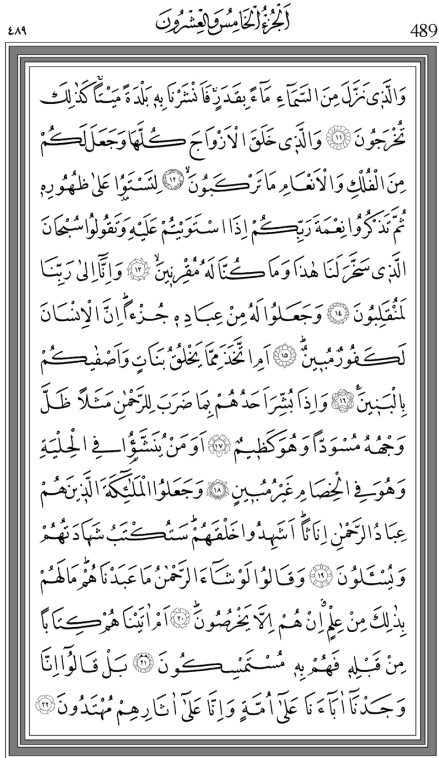 اَلْجُزْءُ الْخَامِسُ وَالْعِشْرُونَ
٤٨٩
489
وَالَّذ۪ي نَزَّلَ مِنَ السَّمَٓاءِ مَٓاءً بِقَدَرٍۚ فَاَنْشَرْنَا بِه۪ بَلْدَةً مَيْتًاۚ كَذٰلِكَ
تُخْرَجُونَ ﴿١١﴾ وَالَّذ۪ي خَلَقَ الْاَزْوَاجَ كُلَّهَا وَجَعَلَ لَكُمْ
مِنَ الْفُلْكِ وَالْاَنْعَامِ مَا تَرْكَبُونَۙ ﴿١٢﴾ لِتَسْتَوُ۫ا عَلٰى ظُهُورِه۪
ثُمَّ تَذْكُرُوا نِعْمَةَ رَبِّكُمْ اِذَا اسْتَوَيْتُمْ عَلَيْهِ وَتَقُولُوا سُبْحَانَ
الَّذ۪ي سَخَّرَ لَنَا هٰذَا وَمَا كُنَّا لَهُ مُقْرِن۪ينَۙ ﴿١٣﴾ وَاِنَّٓا اِلٰى رَبِّنَا
لَمُنْقَلِبُونَ ﴿١٤﴾ وَجَعَلُوا لَهُ مِنْ عِبَادِه۪ جُزْءًاۜ اِنَّ الْاِنْسَانَ
لَكَفُورٌ مُب۪ينٌۜ ﴿١٥﴾ اَمِ اتَّخَذَ مِمَّا يَخْلُقُ بَنَاتٍ وَاَصْفٰيكُمْ
بِالْبَن۪ينَۜ ﴿١٦﴾ وَاِذَا بُشِّرَ اَحَدُهُمْ بِمَا ضَرَبَ لِلرَّحْمٰنِ مَثَلًا ظَلَّ
وَجْهُهُ مُسْوَدًّا وَهُوَ كَظ۪يمٌ ﴿١٧﴾ اَوَمَنْ يُنَشَّؤُ۬ا فِي الْحِلْيَةِ
وَهُوَ فِي الْخِصَامِ غَيْرُ مُب۪ينٍ ﴿١٨﴾ وَجَعَلُوا الْمَلٰٓئِكَةَ الَّذ۪ينَ هُمْ
عِبَادُ الرَّحْمٰنِ اِنَاثًاۜ اَشَهِدُوا خَلْقَهُمْۜ سَتُكْتَبُ شَهَادَتُهُمْ
وَيُسْـَٔلُونَ ﴿١٩﴾ وَقَالُوا لَوْ شَٓاءَ الرَّحْمٰنُ مَا عَبَدْنَاهُمْۜ مَا لَهُمْ
بِذٰلِكَ مِنْ عِلْمٍۗ اِنْ هُمْ اِلَّا يَخْرُصُونَۜ ﴿٢٠﴾ اَمْ اٰتَيْنَاهُمْ كِتَابًا
مِنْ قَبْلِه۪ فَهُمْ بِه۪ مُسْتَمْسِكُونَ ﴿٢١﴾ بَلْ قَالُٓوا اِنَّا
وَجَدْنَٓا اٰبَٓاءَنَا عَلٰٓى اُمَّةٍ وَاِنَّا عَلٰٓى اٰثَارِهِمْ مُهْتَدُونَ ﴿٢٢﴾